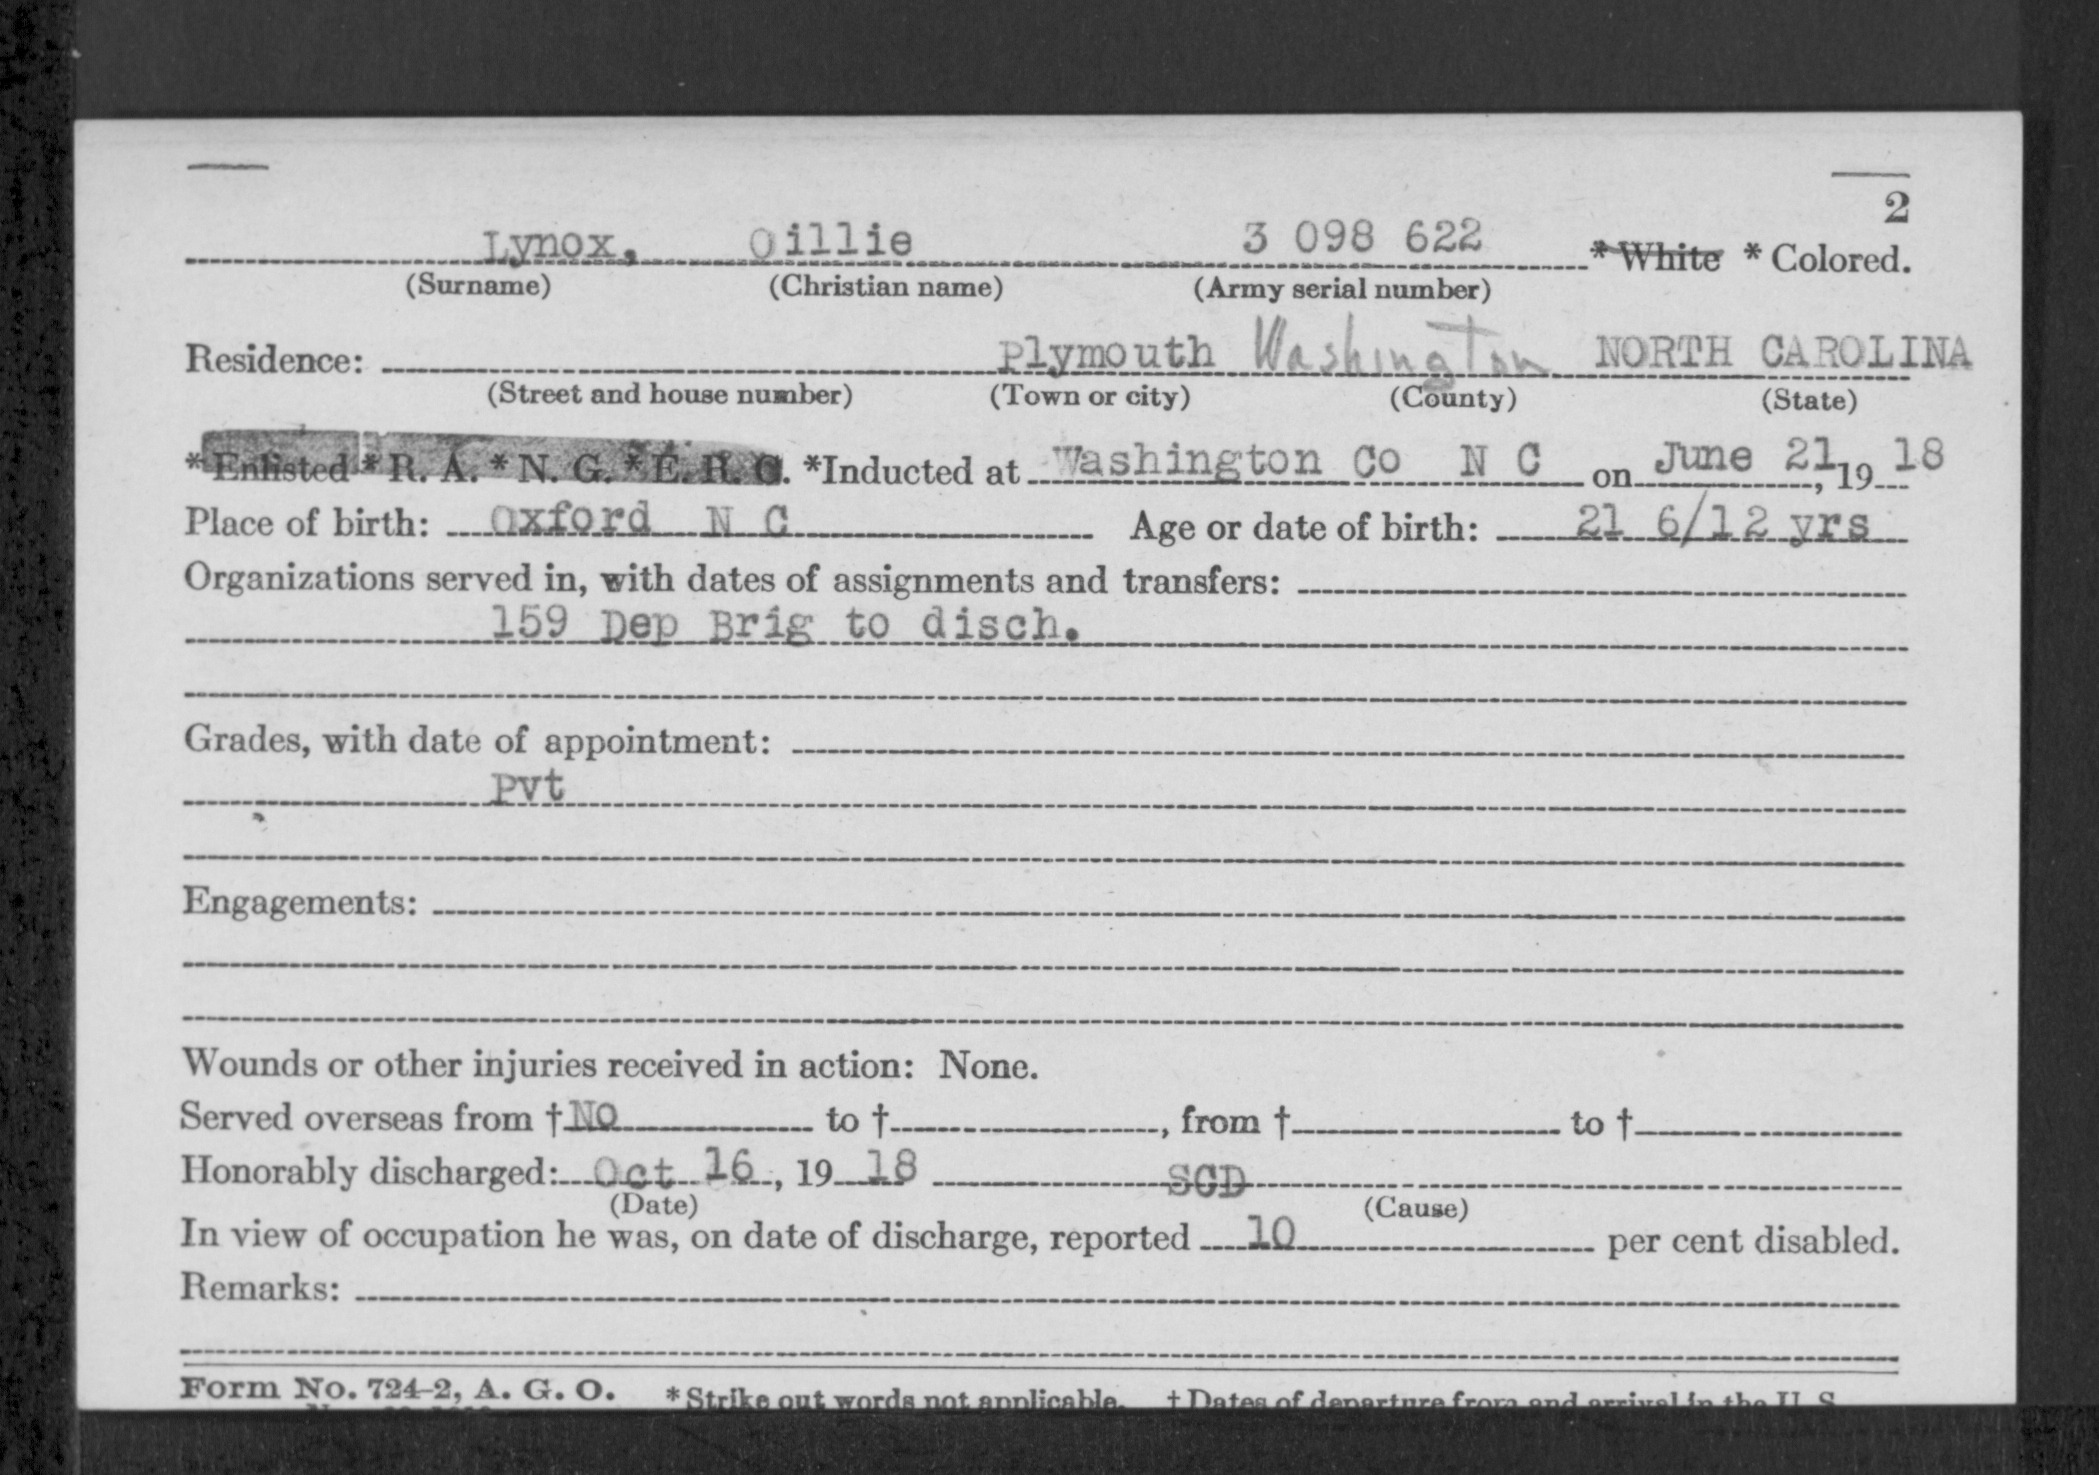 2
Lynox, Oillie 3 098 622 * White * Colored.
(Surname) (Christian name) (Army serial number)
Residence: Plymouth Washington NORTH CAROLINA
(Street and house number) (Town or city) (County) (State)
* Enlisted * R. A. * N. G. * E. R. C. *Inducted at Washington Co N C on June 21, 19 18
Place of birth: Oxford N C Age or date of birth: 21 6/12 yrs
Organizations served in, with dates of assignments and transfers:
159 Dep Brig to disch.
Grades, with date of appointment:
Pvt
Engagements:
Wounds or other injuries received in action: None.
Served overseas from † NO to †, from † to †
Honorably discharged: Oct 16, 19 18 SCD
(Date) (Cause)
In view of occupation he was, on date of discharge, reported 10 per cent disabled.
Remarks:
Form No. 724-2, A. G. O. * Strike out words not applicable. † Dates of departure from and arrival in the U. S.